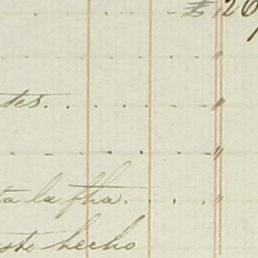 $ 126
tes. . . . . "
. . . . . "
ta la fha. . . . "
este hecho